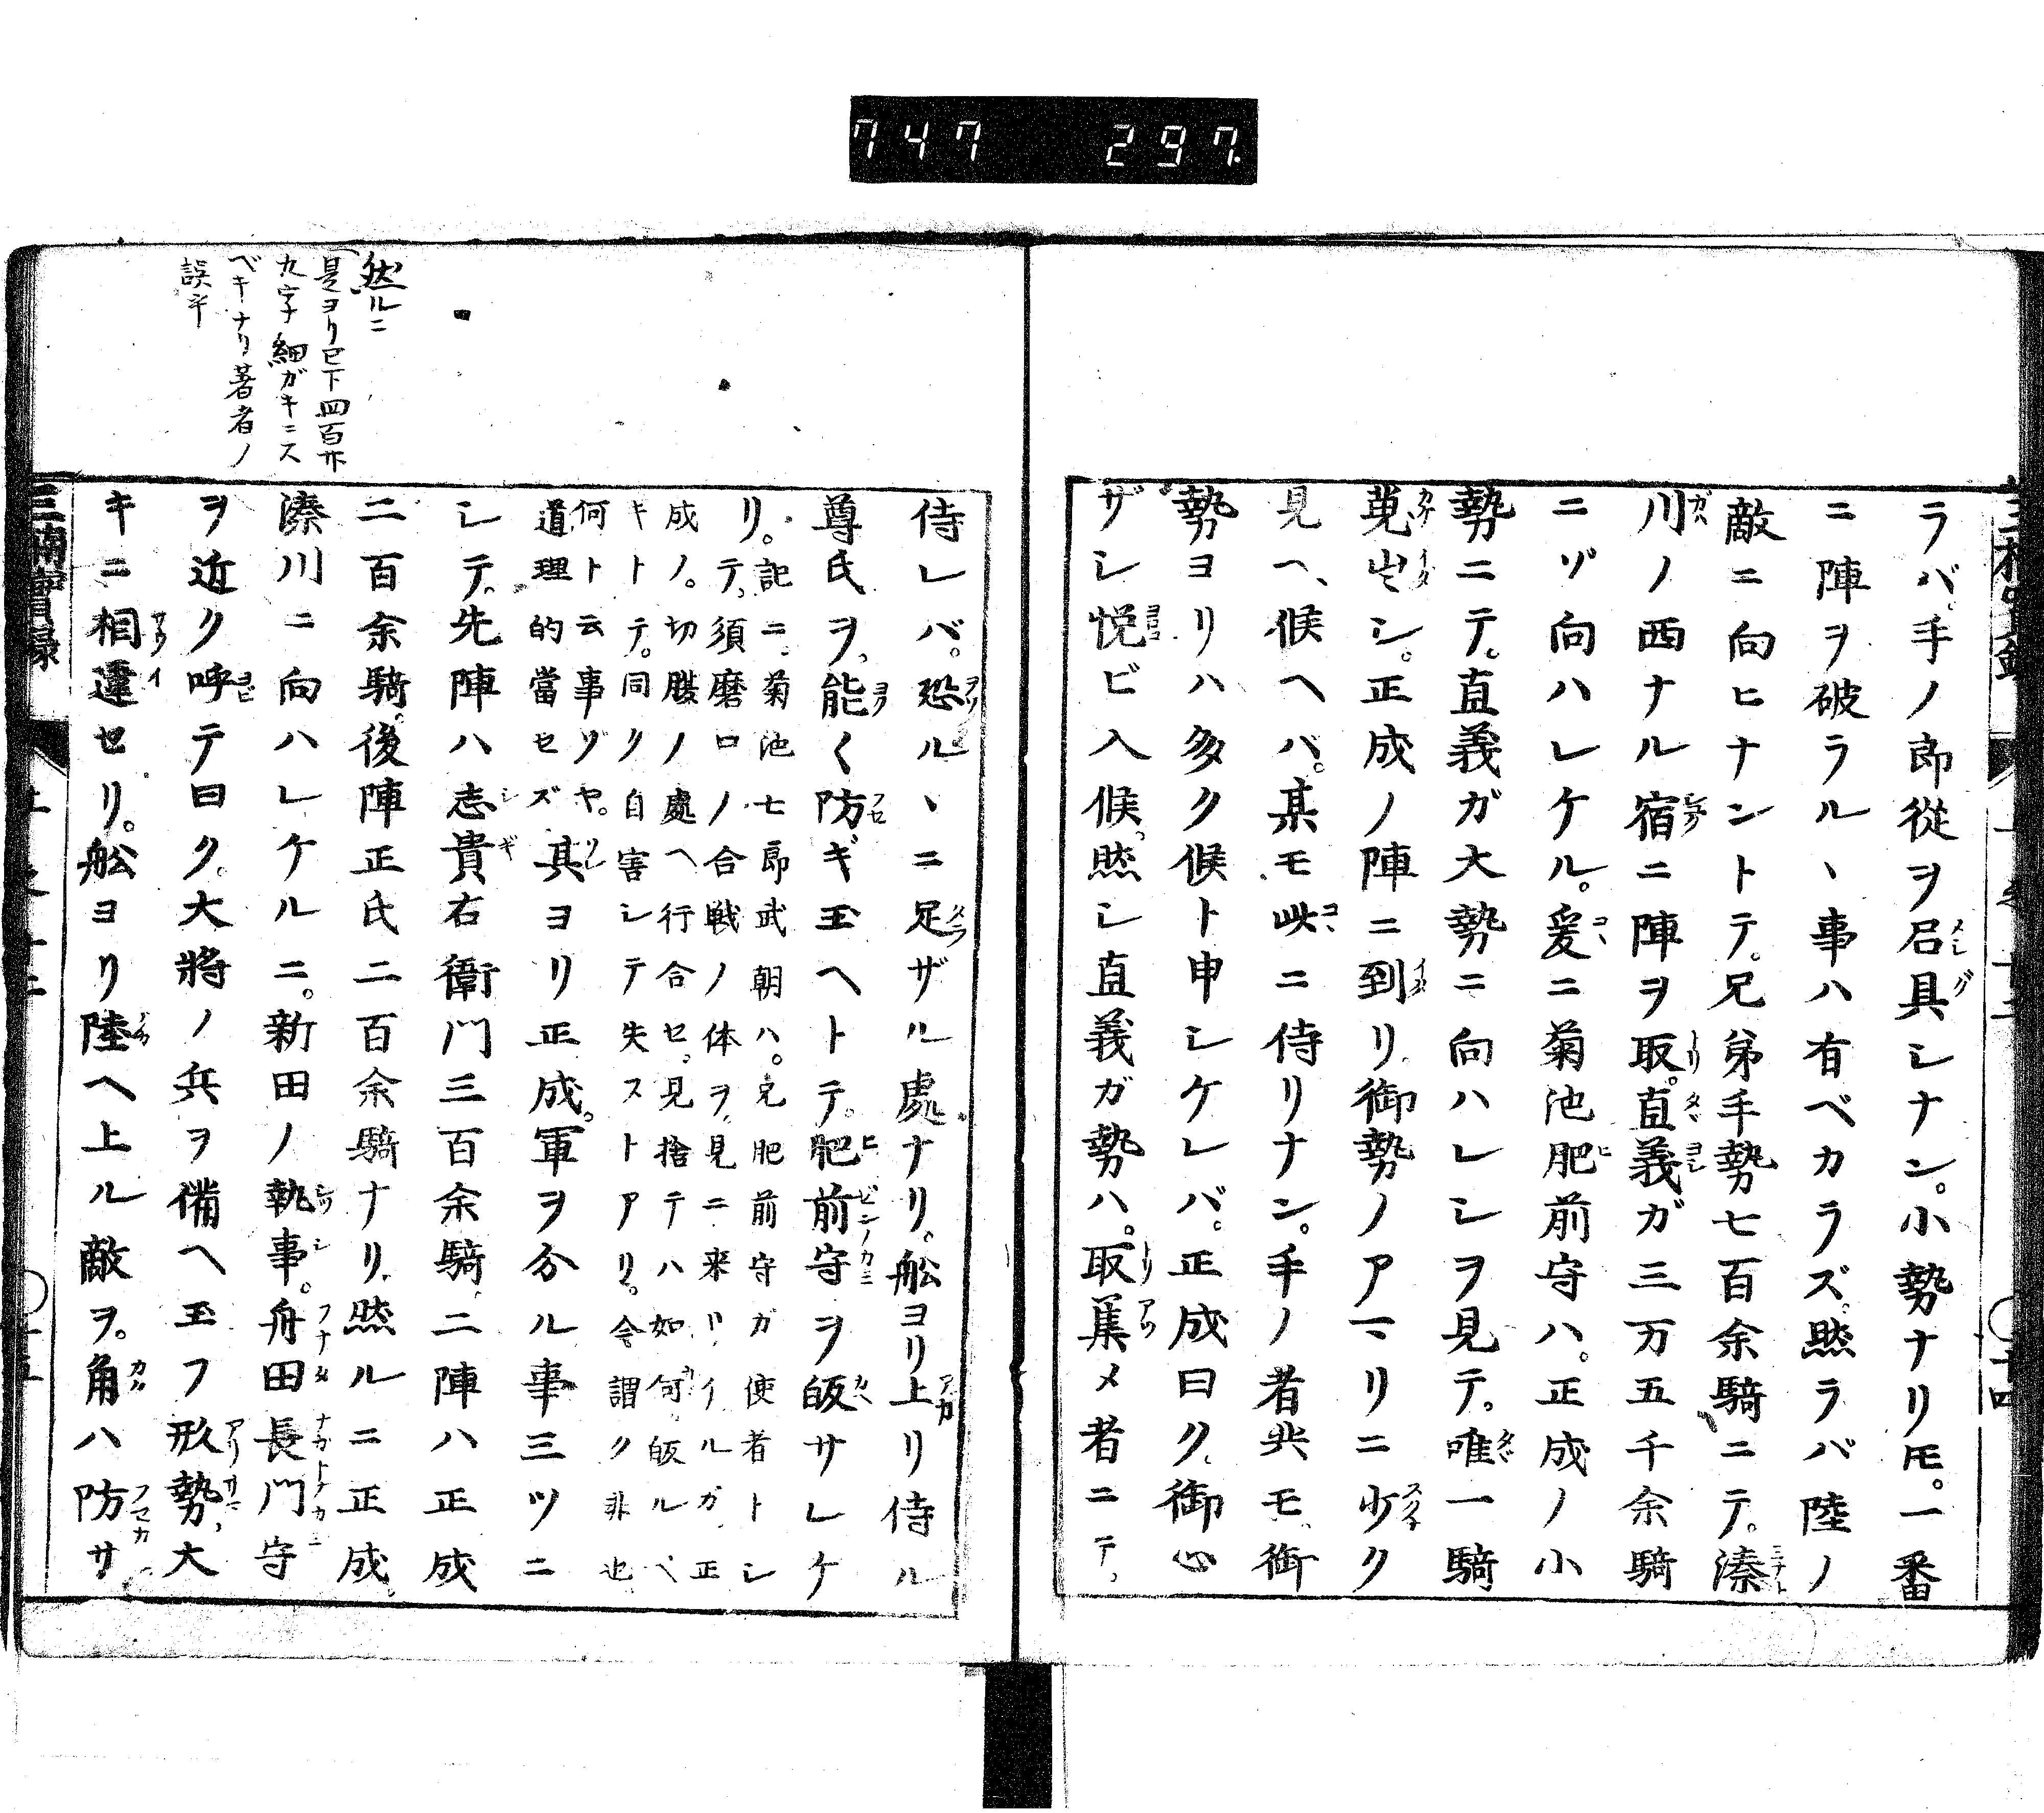 747 297
ラバ。手ノ郎從ヲ召具シナン。小勢ナリ𪜈。一番
ニ陣ヲ破ラル、事ハ有ベカラズ。然ラバ陸ノ
敵ニ向ヒナントテ。兄弟手勢七百余騎ニテ。湊
川ノ西ナル宿ニ陣ヲ取。直義ガ三万五千余騎
ニゾ向ハレケル。爰ニ菊池肥前守ハ。正成ノ小
勢ニテ。直義ガ大勢ニ向ハレシヲ見テ。唯一騎
シ。正成ノ陣ニ到リ。御勢ノアマリニ少ク
見ヘ、候ヘバ。某モ此ニ侍リナン。手ノ者共モ、御
勢ヨリハ多ク候ト申シケレバ。正成曰ク。御心
ザシ悦ビ入候。然シ直義ガ勢ハ。取集メ者ニテ。
侍レバ。恐ル、ニ足ザル處ナリ。舩ヨリ上リ侍ル
尊氏ヲ。能く防ギ玉ヘトテ。肥前守ヲ皈サレケ
リ。記ニ。菊池七郎武朝ハ。兄肥前守ガ使者トシ
テ。須磨口ノ合戦ノ体ヲ。見ニ来リイルガ。正
成ノ。切腹ノ處ヘ行合セ。見捨テハ如何。皈ルベ
キトテ。同ク自害シテ失ストアリ。今謂ク非也
何ト云事ゾヤ。
道理的當セズ
其ヨリ正成。軍ヲ分ル事三ツニ
シテ。先陣ハ志貴右衛門三百余騎。二陣ハ正成
二百余騎。後陣正氏二百余騎ナリ。然ルニ正成。
湊川ニ向ハレケルニ。新田ノ執事。舟田長門守
ヲ近ク呼テ曰ク。大將ノ兵ヲ備ヘ玉フ形勢、大
キニ相違セリ。舩ヨリ陸ヘ上ル敵ヲ。角ハ防サ
然ルニ
是ヨリ已下四百廿
九字細ガキニス
ベキナリ著者ノ
誤乎